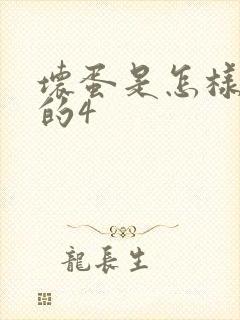 壞蛋是怎樣
的4
龍長生